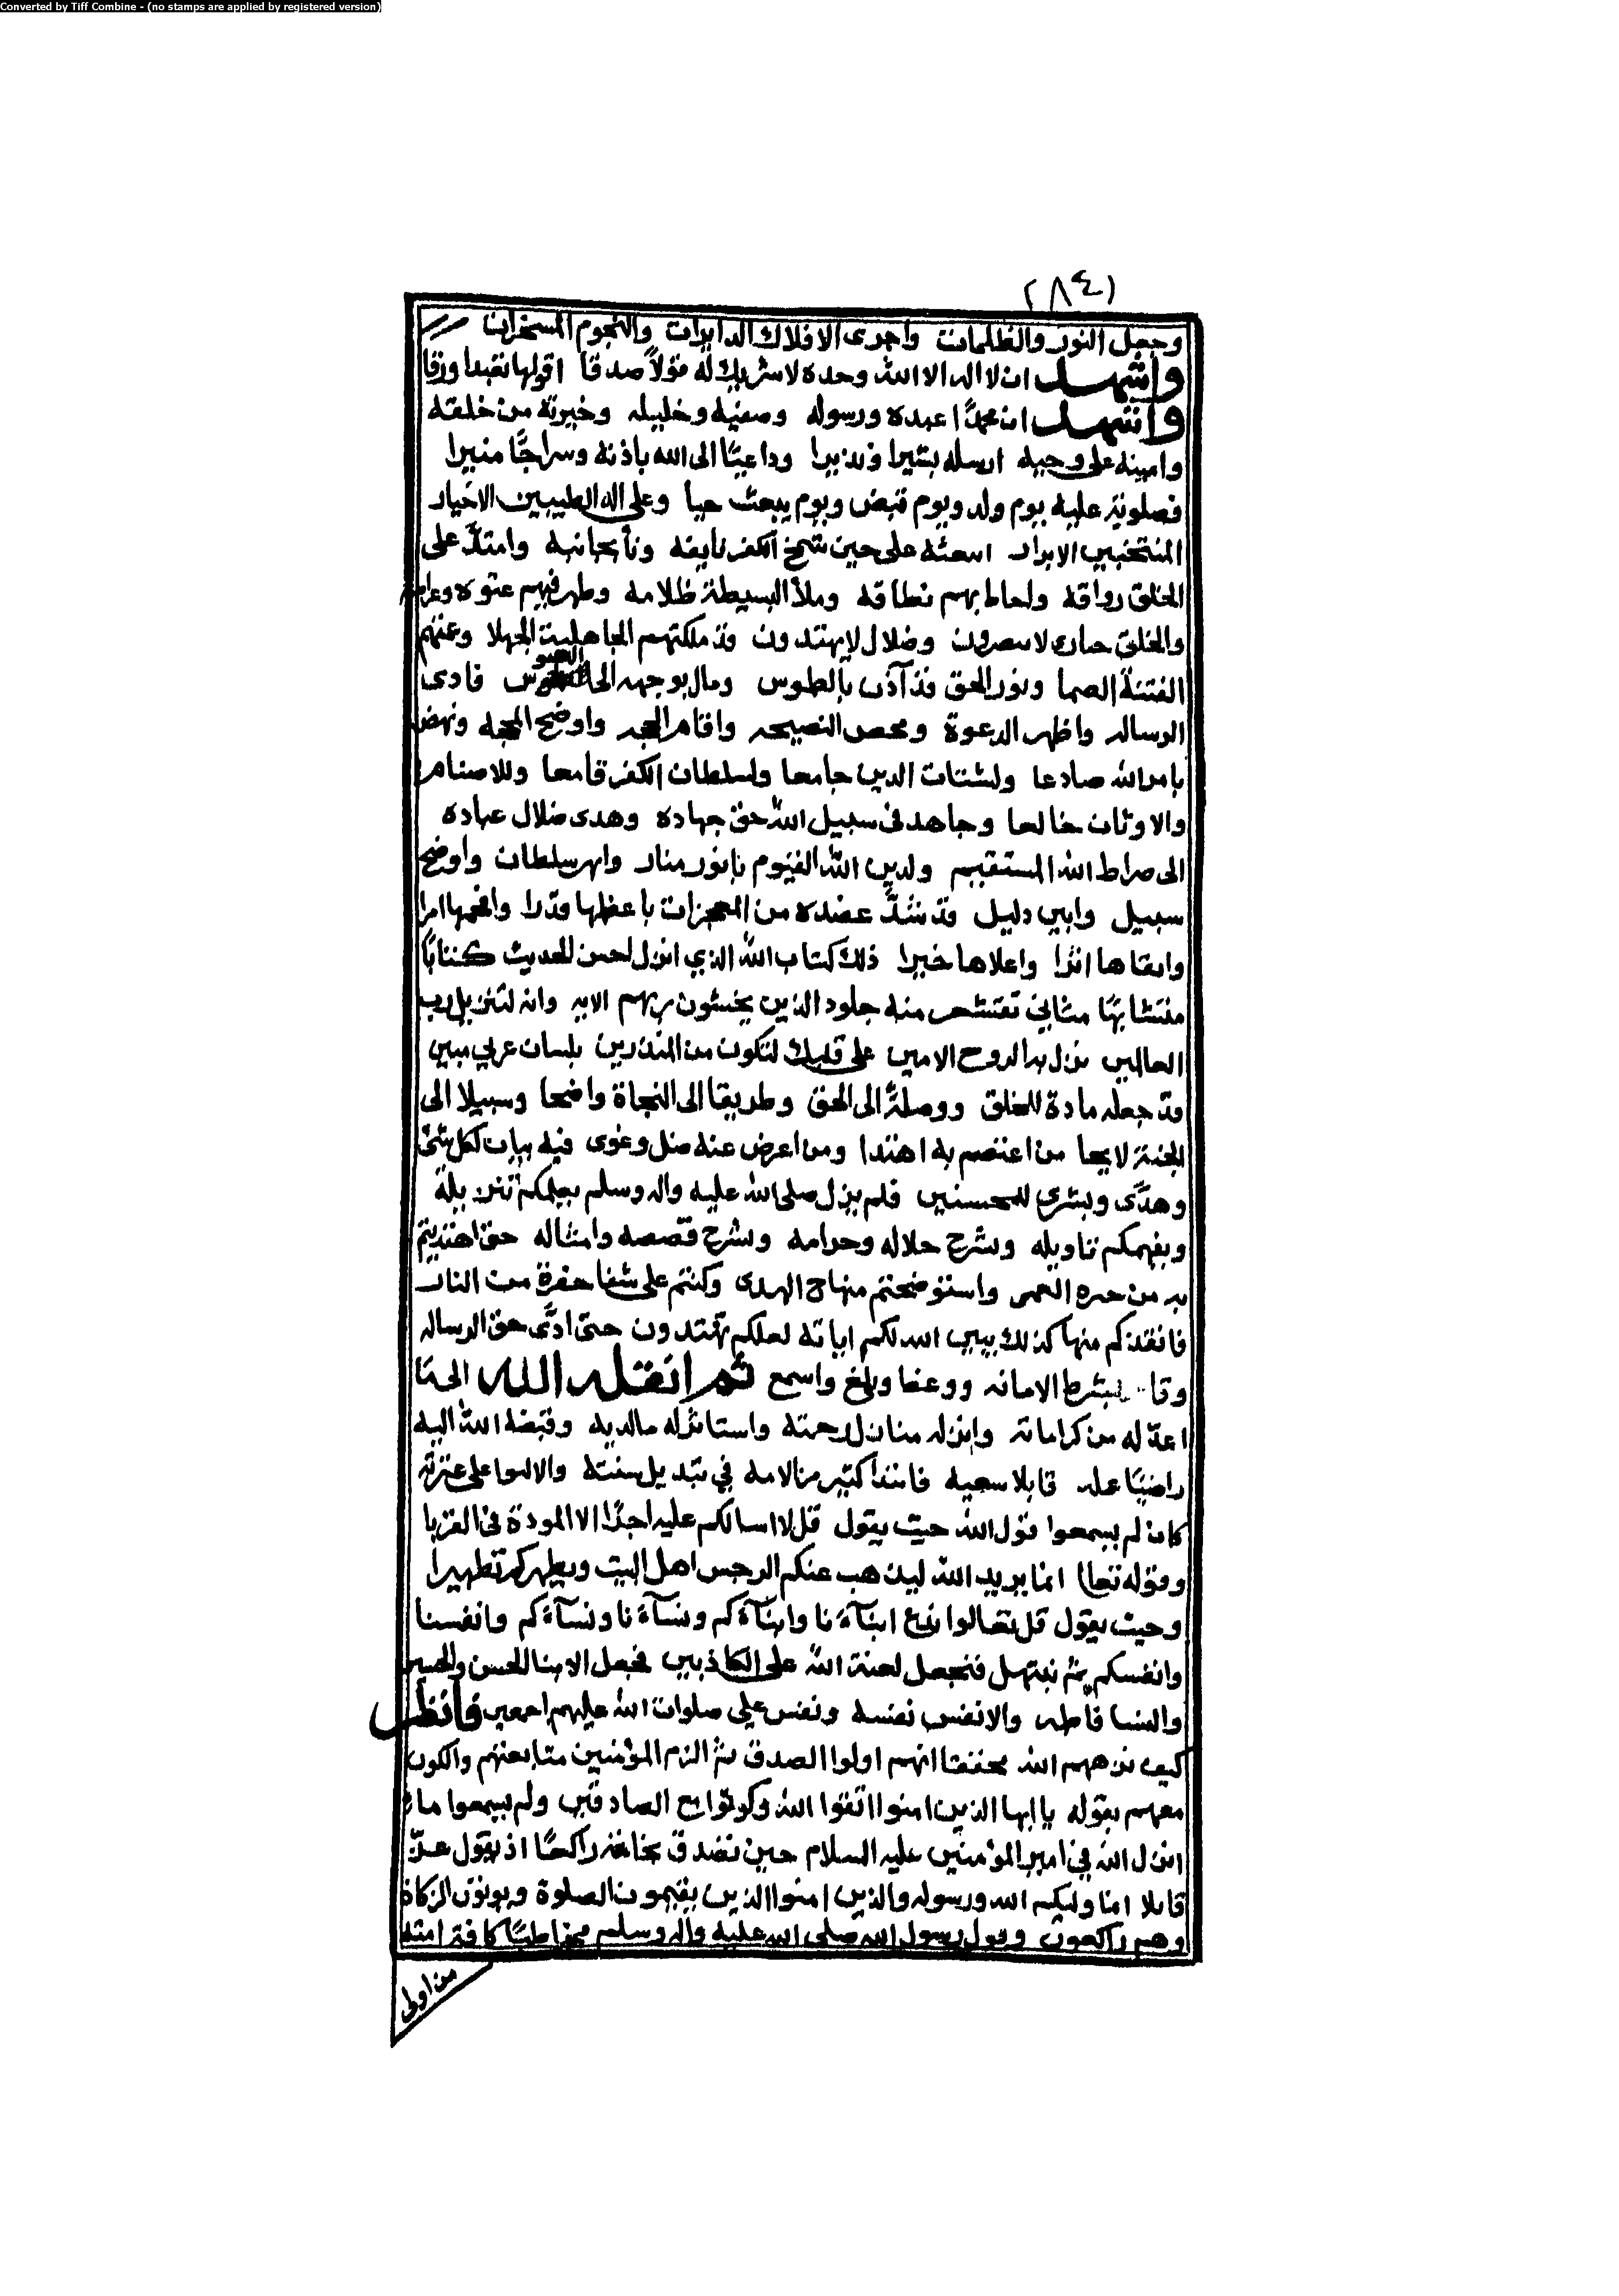 Converted by Tiff Combine - (no stamps are applied by registered version)
(٨٤)
وجعل النور والظلمات واجرى الافلاك الدايرات والنجوم المسخرات
واشهد ان لا اله الا الله وحده لا شريك له قولاً صدقا اقولها تعبدا ورقا
واشهد ان محمدًا عبده ورسوله وصفيه وخليله وخيرته من خلقه
وامينه على وحيه ارسله بشيرا ونذيرا وداعيًا الى الله باذنه وسراجًا منيرا
فصلوته عليه يوم ولد ويوم قبض ويوم يبعث حيا وعلى اله الطيبين الاخيار
المنتخبين الابرار ابتعثه على حين شمخ الكفر بانفه ونأ بجانبه وامتدّ على
الخلق رواقه واحاط بهم نطاقه وملأ البسيطة ظلامه وظهر فيهم عتوه
والخلق حيارى لا يبصرون وضلال لا يهتدون قد ملكتهم الجاهلية الجهلا وعمتهم
الفتنة الصما ونور الحق قد آذن بالطموس ومال بوجهه الى فادى
الرساله واظهر الدعوة ومحص النصيحه واقام الحجه واوضح المحجه ونهض
بامر الله صادعا ولشتات الدين جامعا ولسلطان الكفر قامعا وللاصنام
والاوثان خالعا وجاهد في سبيل الله حق جهاده وهدى ضلال عباده
الى صراط الله المستقيم ولدين الله القيّوم بانور منار وابهر سلطان واوضح
سبيل وابين دليل قد شدّ عضده من المعجزات باعظمها قدرا وافخمها امرا
وابقاها اثرا واعلاها خبرا ذلك كتاب الله الذي انزل احسن الحديث كتابًا
متشابهًا مثاني تقشعر منه جلود الذين يخشون ربهم الايه وانه لتنزيل رب
العالمين نزل به الروح الامين على قلبك لتكون من المنذرين بلسان عربي مبين
قد جعله مادة للخلق ووصلةً الى الحق وطريقا الى النجاة واضحا وسبيلا الى
الجنة لايحا من اعتصم به اهتدا ومن اعرض عنه ضل وغوى فيه بيان لكل شئ
وهدًى وبشرى للمحسنين فلم يزل صلى الله عليه واله وسلم يعلمكم تنزيله
ويفهمكم تاويله وشرح حلاله وحرامه وشرح قصصه وامثاله حتى اهتديتم
به من حيره العمى واستوضحتم منهاج الهدى وكنتم على شفا حفرة من النار
فانقذكم منها كذلك يبين الله لكم اياته لعلكم تهتدون حتى ادّى حق الرساله
بشرط الامانه ووعظ وبلغ واسمع ثم انقله الله الى ما
اعدّ له من كراماته وانزله منازل رحمته واستاثر له مالديه وقبضه الله اليه
راضيًا عمله قابلا سعيه فابتدا كثير من الامه في تبديل سنته على عترته
كان لم يسمعوا قول الله حيث يقول قل لا اسالكم عليه اجرًا الا المودة في القربا
وقوله تعالى انما يريد الله ليذهب عنكم الرجس اهل البيت ويطهركم تطهيرا
وحيث يقول قل تعالوا ندع ابنآءنا وابنآءكم ونسآءنا ونسآءكم وانفسنا
وانفسكم ثم نبتهل فنجعل لعنة الله على الكاذبين فجعل الابنا الحسن والحسين
والنسا فاطمه والانفس نفسه ونفس علي صلوات الله عليهم اجمعين فانظر
كيف نزههم الله محققا انهم اولوا الصدق ثم الزم المؤمنين متابعتهم والكون
معهم بقوله يا ايها الذين امنوا اتقوا الله وكونوا مع الصادقين ولم يسمعوا ما
انزل الله في امير المؤمنين عليه السلام حين تصدق بخاتمه راكعًا اذ يقول عزّ
قايلا انما وليكم الله ورسوله والذين امنوا الذين يقيمون الصلوة ويوتون الزكاة
وهم راكعون وقول رسول الله صلى الله عليه واله وسلم مخاطبًا كافة امته
من اولى